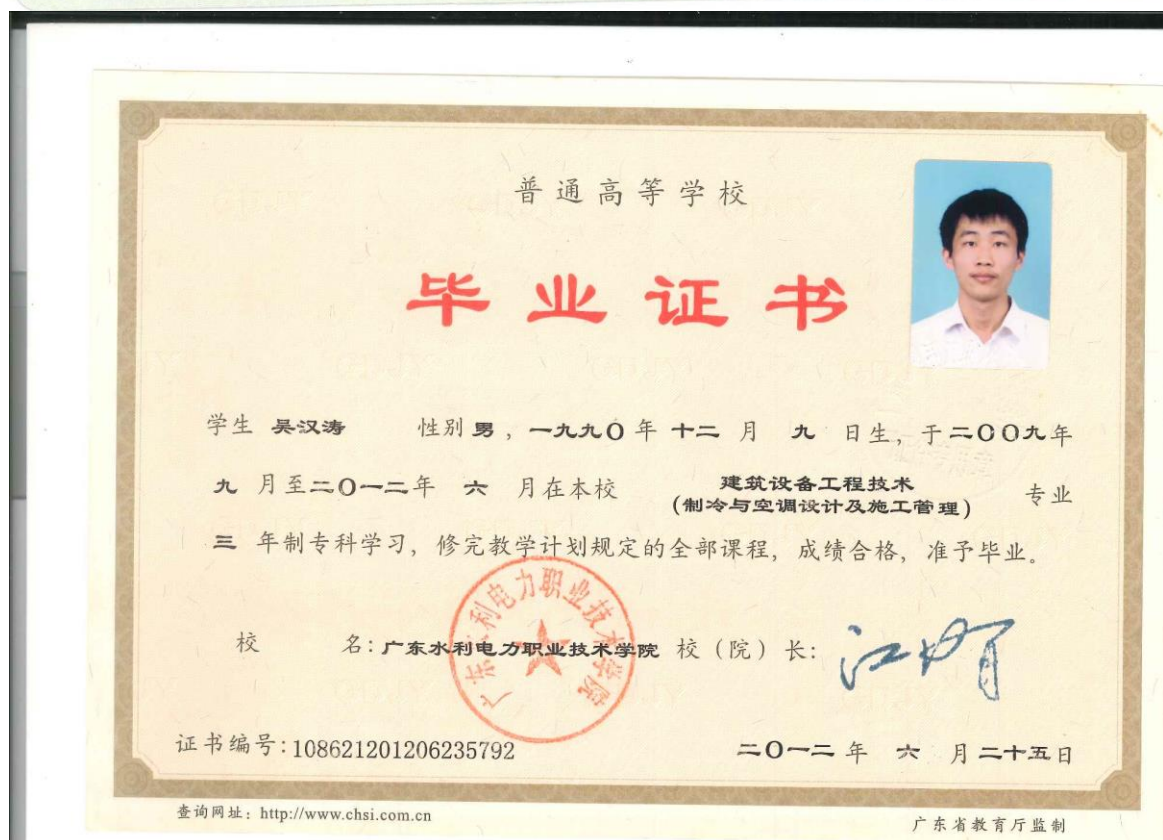 普通高等学校
毕业证书
学生 吴汉涛 性别 男，一九九〇年 十二 月 九 日生，于二〇〇九年
九 月至二〇一二年 六 月在本校 建筑设备工程技术 专业
(制冷与空调设计及施工管理)
三 年制专科学习，修完教学计划规定的全部课程，成绩合格，准予毕业。
校 名：广东水利电力职业技术学院 校（院）长：
广东水利电力职业技术学院
证书编号：108621201206235792 二〇一二 年 六 月 二十五日
查询网址：http://www.chsi.com.cn 广东省教育厅监制